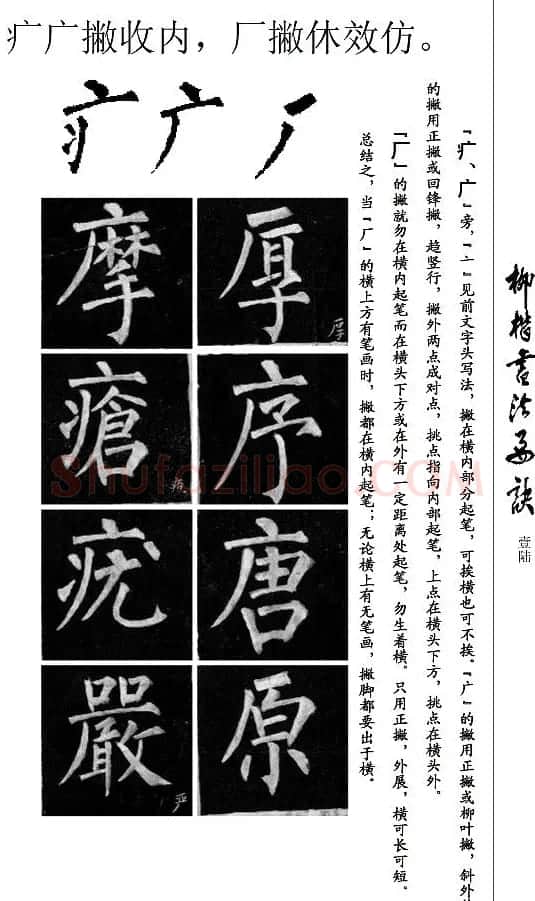 疒广撇收内，厂撇休效仿。
疒广厂
摩厚
瘡序
疣唐
嚴原
厚
严
柳楷书法要诀
壹陆
"疒、广"旁，"亠"见前文字头写法，撇在横内部分起笔，可挨横也可不挨。"广"的撇用正撇或柳叶撇，斜外
的撇用正撇或回锋撇，趋竖行，撇外两点成对点，挑点指向内部起笔，上点在横头下方，挑点在横头外。
"厂"的撇就勿在横内起笔而在横头下方或在外有一定距离处起笔，勿生着横。只用正撇，外展，横可长可短。
总结之，当"厂"的横上方有笔画时，撇都在横内起笔；无论横上有无笔画，撇脚都要出于横。
Shufaziliao.com